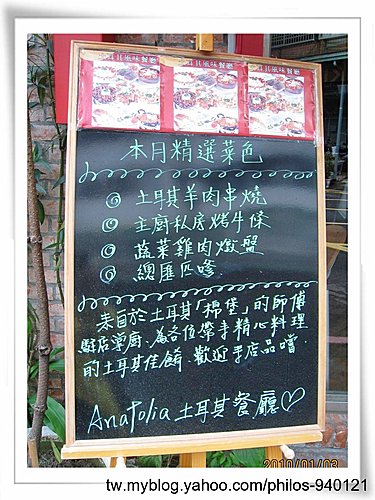 本月精選菜色
土耳其羊肉串燒
主廚私房烤牛條
蔬菜雞肉燉盤
總匯匹嗲
來自於土耳其「棉堡」的師傅
駐店掌廚.為各位帶手精心料理
的土耳其佳餚.歡迎手店品嚐
Anatolia 土耳其餐廳
2010/01/03
tw.myblog.yahoo.com/philos-940121